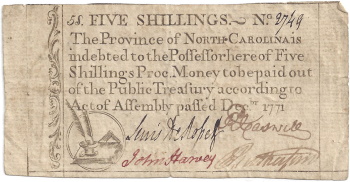 5S. FIVE SHILLINGS. No 2749
The Province of NORTH-CAROLINA is
indebted to the Possessor hereof Five
Shillings Proc. Money to be paid out
of the Public Treasury according to
Act of Assembly passed Decem. 1771
Lewis De Rosset R Caswell
John Harvey J Rutherfurd